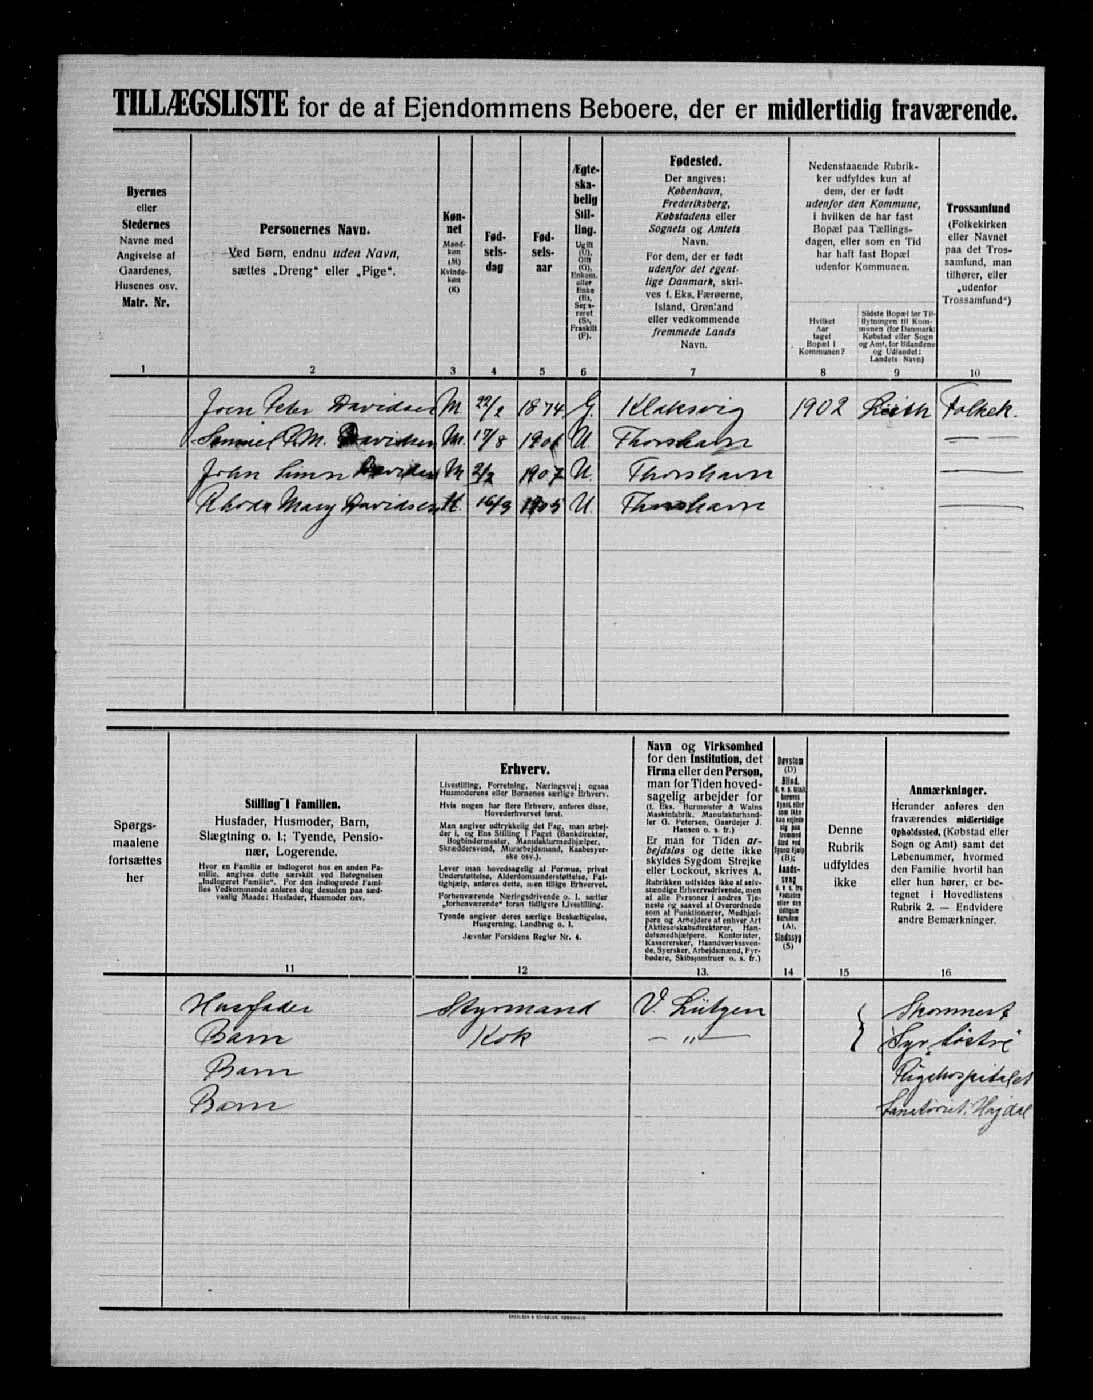 TILLÆGSLISTE for de af Ejendommens Beboere, der er midlertidig fraværende.
Byernes
eller
Stedernes
Navne med
Angivelse af
Gaardenes,
Husenes osv.
Matr. Nr.
1
Personernes Navn.
Ved Børn, endnu uden Navn,
sættes „Dreng“ eller „Pige“.
2
Køn-
net
Mand-
køn
(M)
Kvinde-
køn
(K)
3
Fød-
sels-
dag
4
Fød-
sels-
aar
5
Ægte-
ska-
belig
Stil-
ling.
Ugift
(U),
Gift
(G),
Enkem.
eller
Enke
(E),
Sepa-
reret
(S),
Fraskilt
(F).
6
Fødested.
Der angives:
København,
Frederiksberg,
Købstadens eller
Sognets og Amtets
Navn.
For dem, der er født
udenfor det egent-
lige Danmark, skri-
ves f. Eks. Færøerne,
Island, Grønland
eller vedkommende
fremmede Lands
Navn.
7
Nedenstaaende Rubrik-
ker udfyldes kun af
dem, der er født
udenfor den Kommune,
i hvilken de har fast
Bopæl paa Tællings-
dagen, eller som en Tid
har haft fast Bopæl
udenfor Kommunen.
Hvilket
Aar
taget
Bopæl i
Kommunen?
8
Sidste Bopæl før Til-
flytningen til Kom-
munen (for Danmark:
Købstad eller Sogn
og Amt, for Bilandene
og Udlandet:
Landets Navn)
9
Trossamfund
(Folkekirken
eller Navnet
paa det Tros-
samfund, man
tilhører, eller
„udenfor
Trossamfund“)
10
Joen Peter Davidsen M. 22/2 1874 G. Klaksvig 1902 Leith Folkek.
Samuel P. M. Davidsen M. 17/8 U Thorshavn — —
John Simon Davidsen M 2/2 1907 U. Thorshavn —
Rhoda Mary Davidsen K. 16/9 1905 U. Thorshavn —
Spørgs-
maalene
fortsættes
her
Stilling i Familien.
Husfader, Husmoder, Barn,
Slægtning o. l.; Tyende, Pensio-
nær, Logerende.
Hvor en Familie er indlogeret hos en anden Fa-
milie, angives dette særskilt ved Betegnelsen
„Indlogeret Familie“. For den indlogerede Fami-
lies Vedkommende anføres dog desuden paa sæd-
vanlig Maade: Husfader, Husmoder osv.
11
Erhverv.
Livsstilling, Forretning, Næringsvej; ogsaa
Husmoderens eller Børnenes særlige Erhverv.
Hvis nogen har flere Erhverv, anføres disse,
Hovederhvervet først.
Man angiver udtrykkelig det Fag, man arbej-
der i, og Ens Stilling i Faget (Bankdirektør,
Bogbindermester, Manufakturmedhjælper,
Skræddersvend, Murarbejdsmand, Kaabesyer-
ske osv.).
Lever man hovedsagelig af Formue, privat
Understøttelse, Alderdomsunderstøttelse, Fat-
tighjælp, anføres dette, men tillige Erhvervet.
Forhenværende Næringsdrivende o. l. sætter
„forhenværende“ foran tidligere Livsstilling.
Tyende angiver deres særlige Beskæftigelse,
Husgerning, Landbrug o. l.
Jævnfør Forsidens Regler Nr. 4.
12
Navn og Virksomhed
for den Institution, det
Firma eller den Person,
man for Tiden hoved-
sagelig arbejder for
(f. Eks. Burmeister & Wains
Maskinfabrik, Manufakturhand-
ler G. Petersen, Gaardejer J.
Hansen o. s. fr.)
Er man for Tiden ar-
bejdsløs og dette ikke
skyldes Sygdom Strejke
eller Lockout, skrives A.
Rubrikken udfyldes ikke af selv-
stændige Erhvervsdrivende, men
af alle Personer i andres Tje-
neste og saavel af Overordnede
som af Funktionærer, Medhjæl-
pere og Arbejdere af enhver Art
(Aktieselskabsdirektører, Han-
delsmedhjælpere, Kontorister,
Kassererskér, Haandværkssven-
de, Syersker, Arbejdsmænd, Fyr-
bødere, Skibsjomfruer o. s. fr.)
13.
Døvstum
(D)
Blind.
(B);
Aands-
svag
(A).
Sindssyg
(S)
14
Denne
Rubrik
udfyldes
ikke
15
Anmærkninger.
Herunder anføres den
fraværendes midlertidige
Opholdssted, (Købstad eller
Sogn og Amt) samt det
Løbenummer, hvormed
den Familie, hvortil han
eller hun hører, er be-
tegnet i Hovedlistens
Rubrik 2. — Endvidere
andre Bemærkninger.
16
Husfader Styrmand V. Lützen
Barn Kok — „ —
Barn Rigshospitalet
Barn Sanatoriet. Hojdal